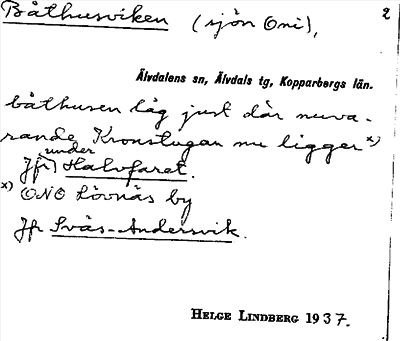 Båthusviken (sjön Oni), 2
Älvdalens sn, Älvdals tg, Kopparbergs län.
båthusen låg just där nuva-
rande Kronstugan nu ligger x)
Jfr under Halvfaret.
x) ONO Lövnäs by
Jfr Sväs-Andersvik.
HELGE LINDBERG 1937.